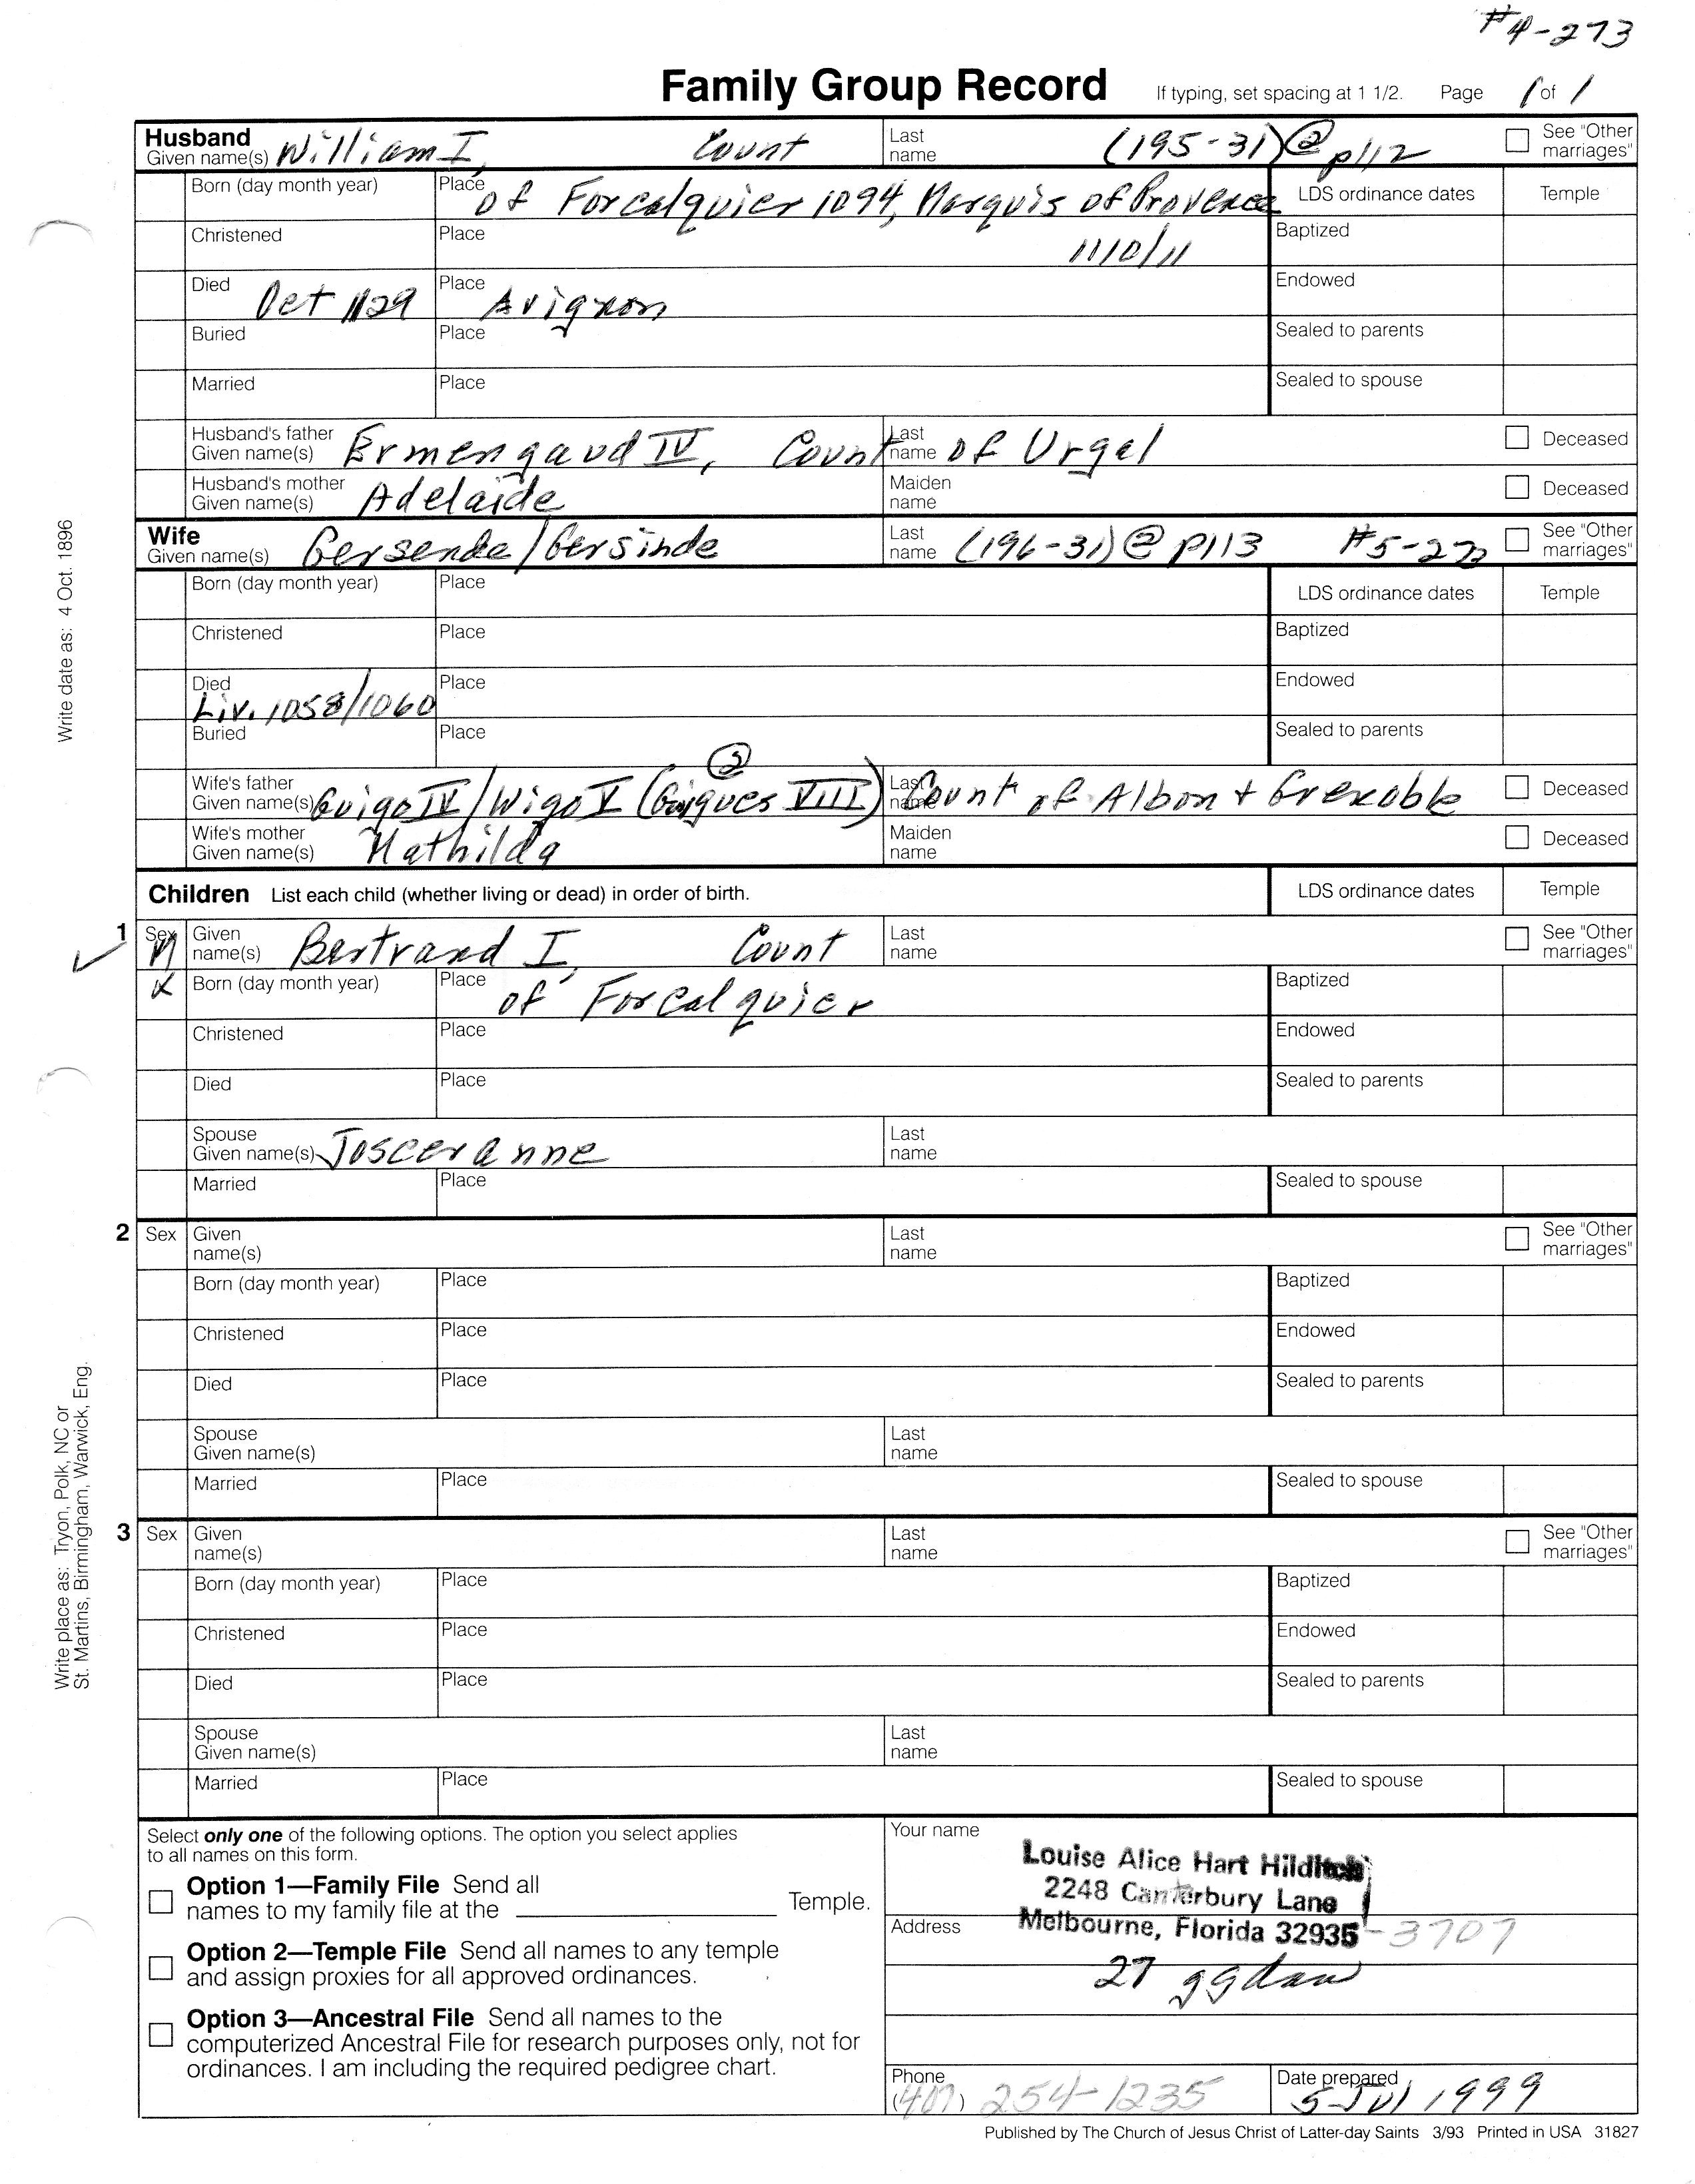 #4-273
Family Group Record If typing, set spacing at 1 1/2. Page 1 of 1
Husband
Given name(s) William I, Count Last name (195-31)@ p112 See "Other marriages"
Born (day month year) Place of Forcalquier 1094, Marquis of Provence LDS ordinance dates Temple
Christened Place 11/0/11 Baptized
Died Oct 1129 Place Avignon Endowed
Buried Place Sealed to parents
Married Place Sealed to spouse
Husband's father Given name(s) Ermengaud IV, Count Last name of Urgel Deceased
Husband's mother Given name(s) Adelaide Maiden name Deceased
Wife
Given name(s) Gersenda/Gersinde Last name (196-31)@ p113 #5-272 See "Other marriages"
Born (day month year) Place LDS ordinance dates Temple
Christened Place Baptized
Died Liv. 1058/1060 Place Endowed
Buried Place Sealed to parents
Wife's father Given name(s) Guigo IV/Wigo V (Guigues VIII) Last name Count of Albon + Grenoble Deceased
Wife's mother Given name(s) Mathilda Maiden name Deceased
Children List each child (whether living or dead) in order of birth. LDS ordinance dates Temple
1 Sex M Given name(s) Bertrand I, Count Last name See "Other marriages"
X Born (day month year) Place of Forcalquier Baptized
Christened Place Endowed
Died Place Sealed to parents
Spouse Given name(s) Josceranne Last name
Married Place Sealed to spouse
2 Sex Given name(s) Last name See "Other marriages"
Born (day month year) Place Baptized
Christened Place Endowed
Died Place Sealed to parents
Spouse Given name(s) Last name
Married Place Sealed to spouse
3 Sex Given name(s) Last name See "Other marriages"
Born (day month year) Place Baptized
Christened Place Endowed
Died Place Sealed to parents
Spouse Given name(s) Last name
Married Place Sealed to spouse
Select only one of the following options. The option you select applies
to all names on this form.
Option 1—Family File Send all
names to my family file at the Temple.
Option 2—Temple File Send all names to any temple
and assign proxies for all approved ordinances.
Option 3—Ancestral File Send all names to the
computerized Ancestral File for research purposes only, not for
ordinances. I am including the required pedigree chart.
Your name
Louise Alice Hart Hilditch
2248 Canterbury Lane
Address Melbourne, Florida 32935-3707
27 ggdau
Phone (407) 254-1235 Date prepared 5 Jul 1999
Published by The Church of Jesus Christ of Latter-day Saints 3/93 Printed in USA 31827
Write date as: 4 Oct. 1896
Write place as: Tryon, Polk, NC or
St. Martins, Birmingham, Warwick, Eng.